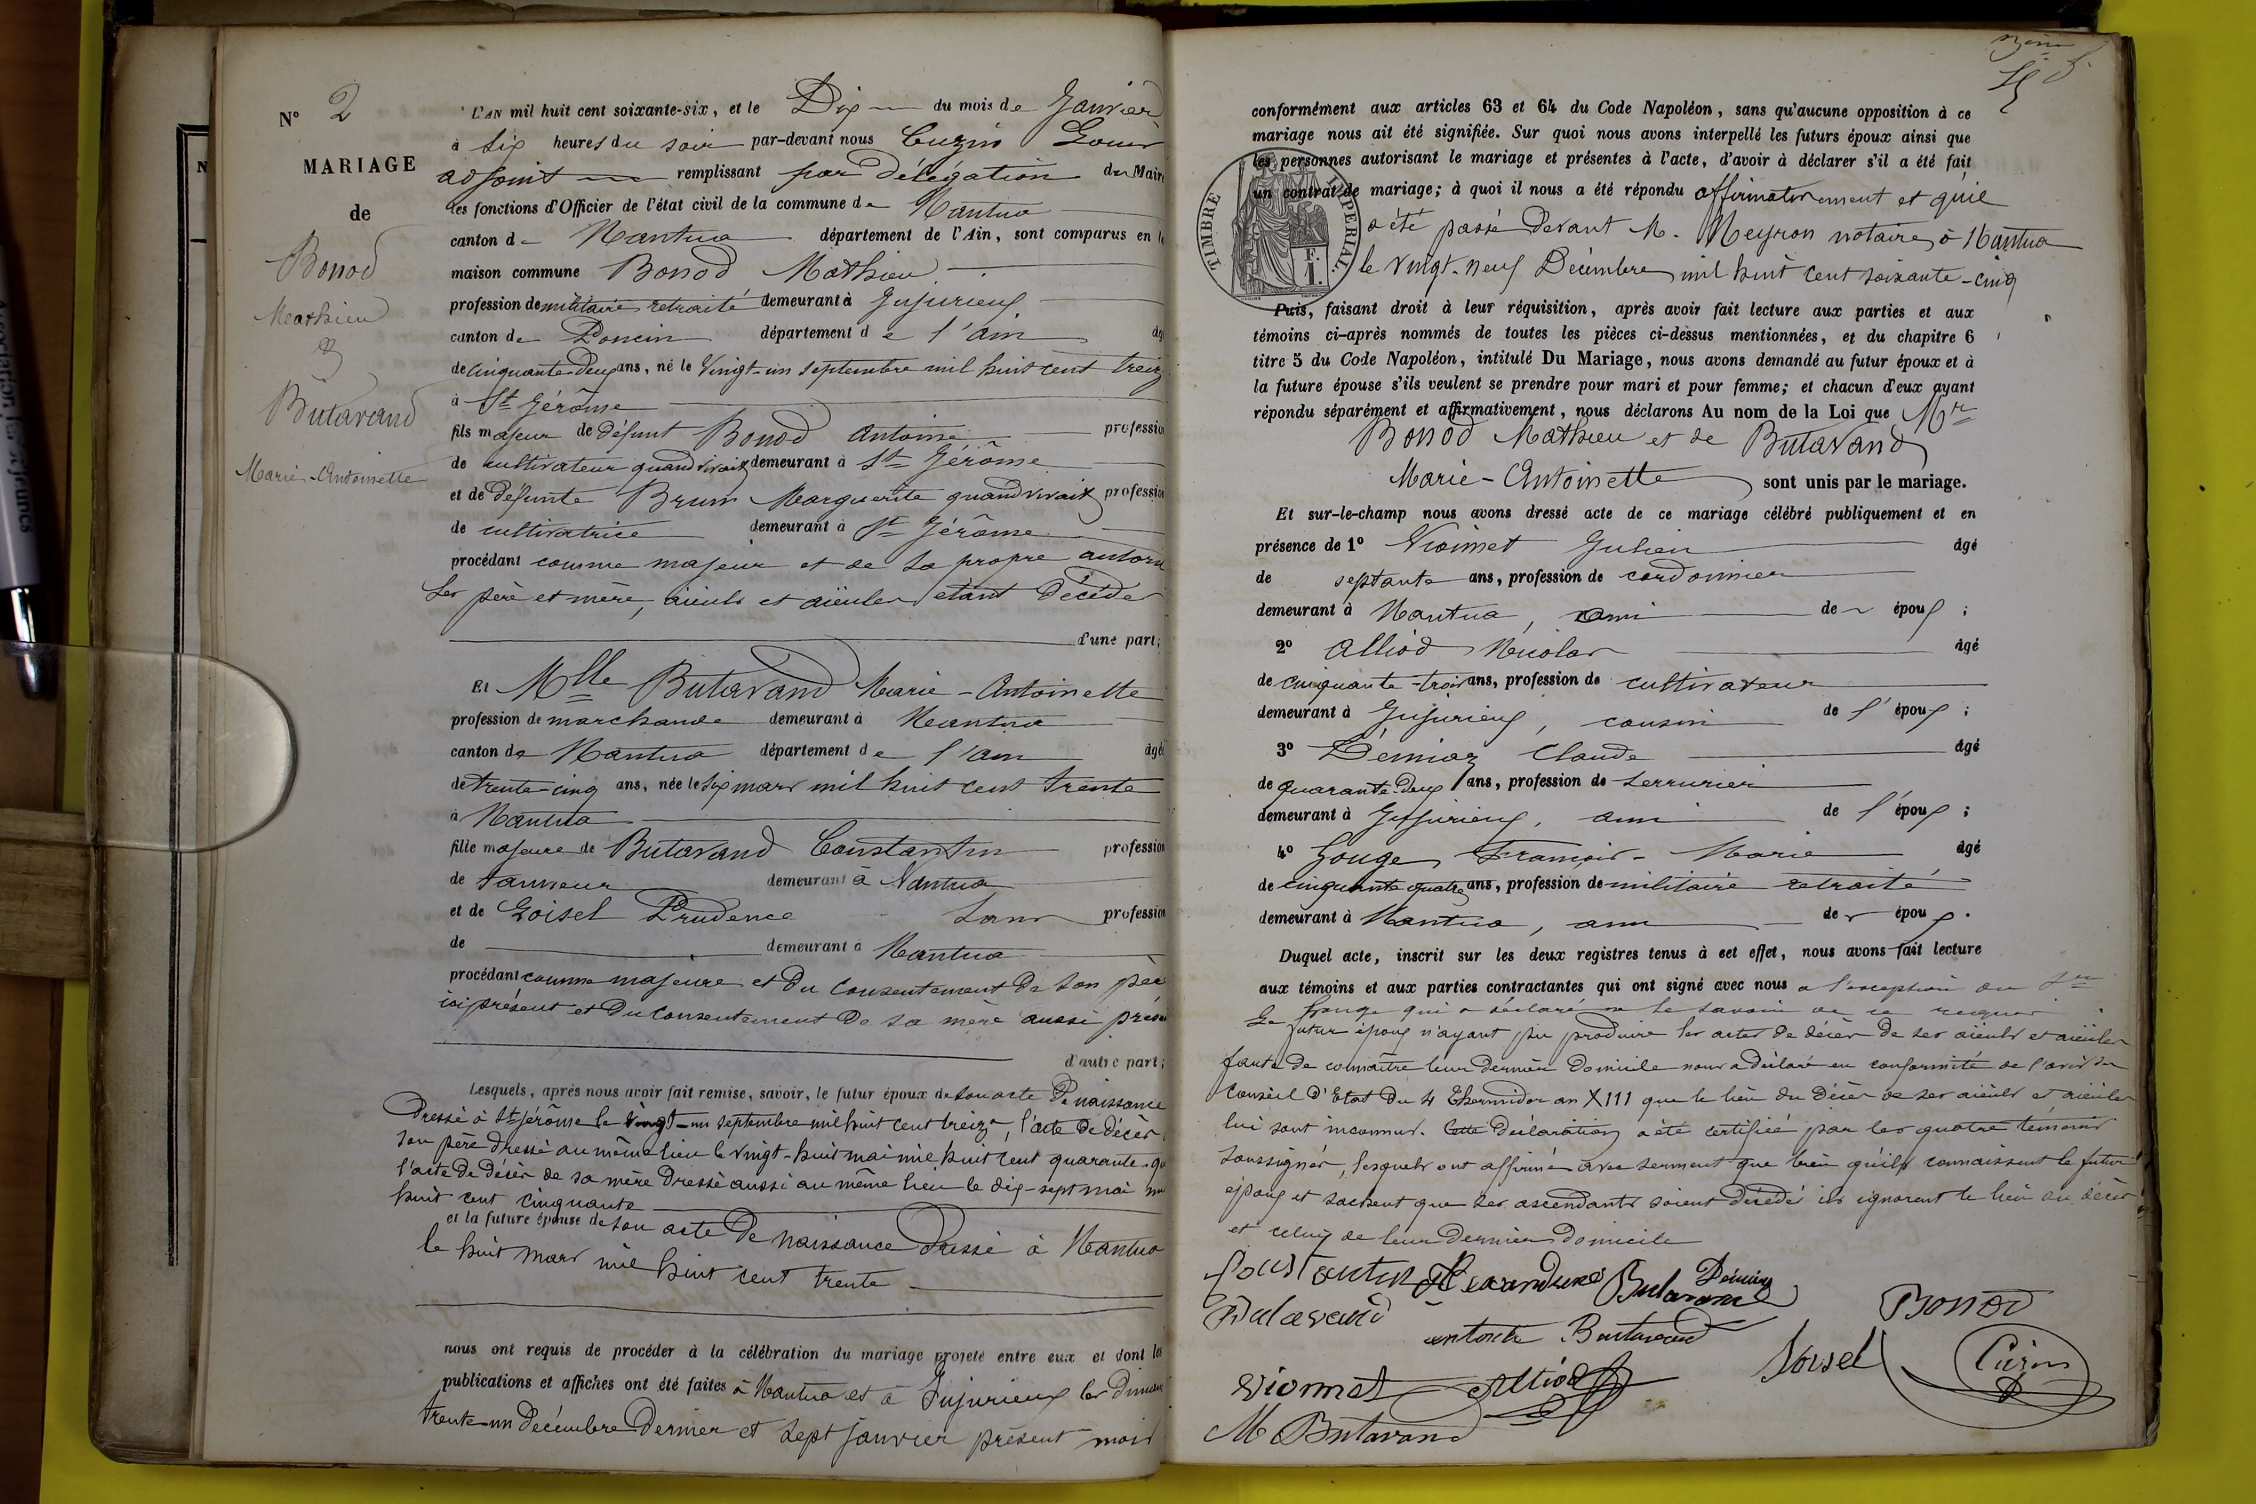 N° 2
MARIAGE
de
Bonod
Mathieu
&
Butavand
Marie-Antoinette
L'AN mil huit cent soixante-six, et le Dix du mois de Janvier
à Six heures du soir par-devant nous Cuzin Louis
adjoint remplissant par délégation du Maire
les fonctions d'Officier de l'état civil de la commune de Nantua
canton de Nantua département de l'Ain, sont comparus en la
maison commune Bonod Mathieu
profession de militaire retraité demeurant à Jujurieux
canton de Poncin département de l'Ain âgé
de cinquante-deux ans, né le vingt-un septembre mil huit cent treize
à St Jérôme
fils majeur de défunt Bonod Antoine profession
de cultivateur quand vivait demeurant à St Jérôme
et de défunte Brun Marguerite quand vivait profession
de cultivatrice demeurant à St Jérôme
procédant comme majeur et de sa propre autori
ses père et mère, aïeuls et aïeules étant décédés
d'une part;
Et Mlle Butavand Marie-Antoinette
profession de marchande demeurant à Nantua
canton de Nantua département de l'Ain âgée
de trente-cinq ans, née le six mars mil huit cent trente
à Nantua
fille majeure de Butavand Constantin profession
de tanneur demeurant à Nantua
et de Loisel Prudence sans profession
de demeurant à Nantua
procédant comme majeure et du consentement de son père
ici présent et du consentement de sa mère aussi prése
d'autre part;
Lesquels, après nous avoir fait remise, savoir, le futur époux de son acte de naissance
dressé à St Jérôme le vingt-un septembre mil huit cent treize, l'acte de décès
son père dressé au même lieu le vingt-huit mai mil huit cent quarante-qu
l'acte de décès de sa mère dressé aussi au même lieu le dix-sept mai mil
huit cent cinquante
et la future épouse de son acte de naissance dressé à Nantua
le huit mars mil huit cent trente
nous ont requis de procéder à la célébration du mariage projeté entre eux et dont les
publications et affiches ont été faites à Nantua et à Jujurieux les Diman
trente-un Décembre dernier et sept janvier présent mois
conformément aux articles 63 et 64 du Code Napoléon, sans qu'aucune opposition à ce
mariage nous ait été signifiée. Sur quoi nous avons interpellé les futurs époux ainsi que
les personnes autorisant le mariage et présentes à l'acte, d'avoir à déclarer s'il a été fait
un contrat de mariage; à quoi il nous a été répondu affirmativement et qu'il
a été passé devant M. Meyron notaire à Nantua
le vingt-neuf Décembre mil huit cent soixante-cinq
TIMBRE IMPERIAL
F.
1.
Puis, faisant droit à leur réquisition, après avoir fait lecture aux parties et aux
témoins ci-après nommés de toutes les pièces ci-dessus mentionnées, et du chapitre 6
titre 5 du Code Napoléon, intitulé Du Mariage, nous avons demandé au futur époux et à
la future épouse s'ils veulent se prendre pour mari et pour femme; et chacun d'eux ayant
répondu séparément et affirmativement, nous déclarons Au nom de la Loi que Mr
Bonod Mathieu et de Butavand
Marie-Antoinette sont unis par le mariage.
Et sur-le-champ nous avons dressé acte de ce mariage célébré publiquement et en
présence de 1° Viormet Julien âgé
de septante ans, profession de cordonnier
demeurant à Nantua, ami de époux;
2° Alliod Nicolas âgé
de cinquante-trois ans, profession de cultivateur
demeurant à Jujurieux, cousin de l'époux;
3° Démiaz Claude âgé
de quarante-deux ans, profession de serrurier
demeurant à Jujurieux, ami de l'époux;
4° Gouge François-Marie âgé
de cinquante quatre ans, profession de militaire retraité
demeurant à Nantua, ami de époux.
Duquel acte, inscrit sur les deux registres tenus à cet effet, nous avons fait lecture
aux témoins et aux parties contractantes qui ont signé avec nous à l'exception du Sr
Gouge qui a déclaré ne le savoir de ce requis
Le futur époux n'ayant pu produire les actes de décès de ses aïeuls et aïeules
faute de connaître leur dernier domicile nous a déclaré en conformité de l'avis du
Conseil d'Etat du 4 Thermidor an XIII que le lieu du décès de ses aïeuls et aïeules
lui sont inconnus. Cette déclaration a été certifiée par les quatre témoins
soussignés, lesquels ont affirmé avec serment que bien qu'ils connaissent le futur
époux et sachent que ses ascendants soient décédés ils ignorent le lieu du décès
et celui de leur dernier domicile
Constantin Alexandrine Butavand Démiaz
Butavand Bonod
antoinette Butavand
Loisel Cuzin
Viormet Alliod
M Butavand